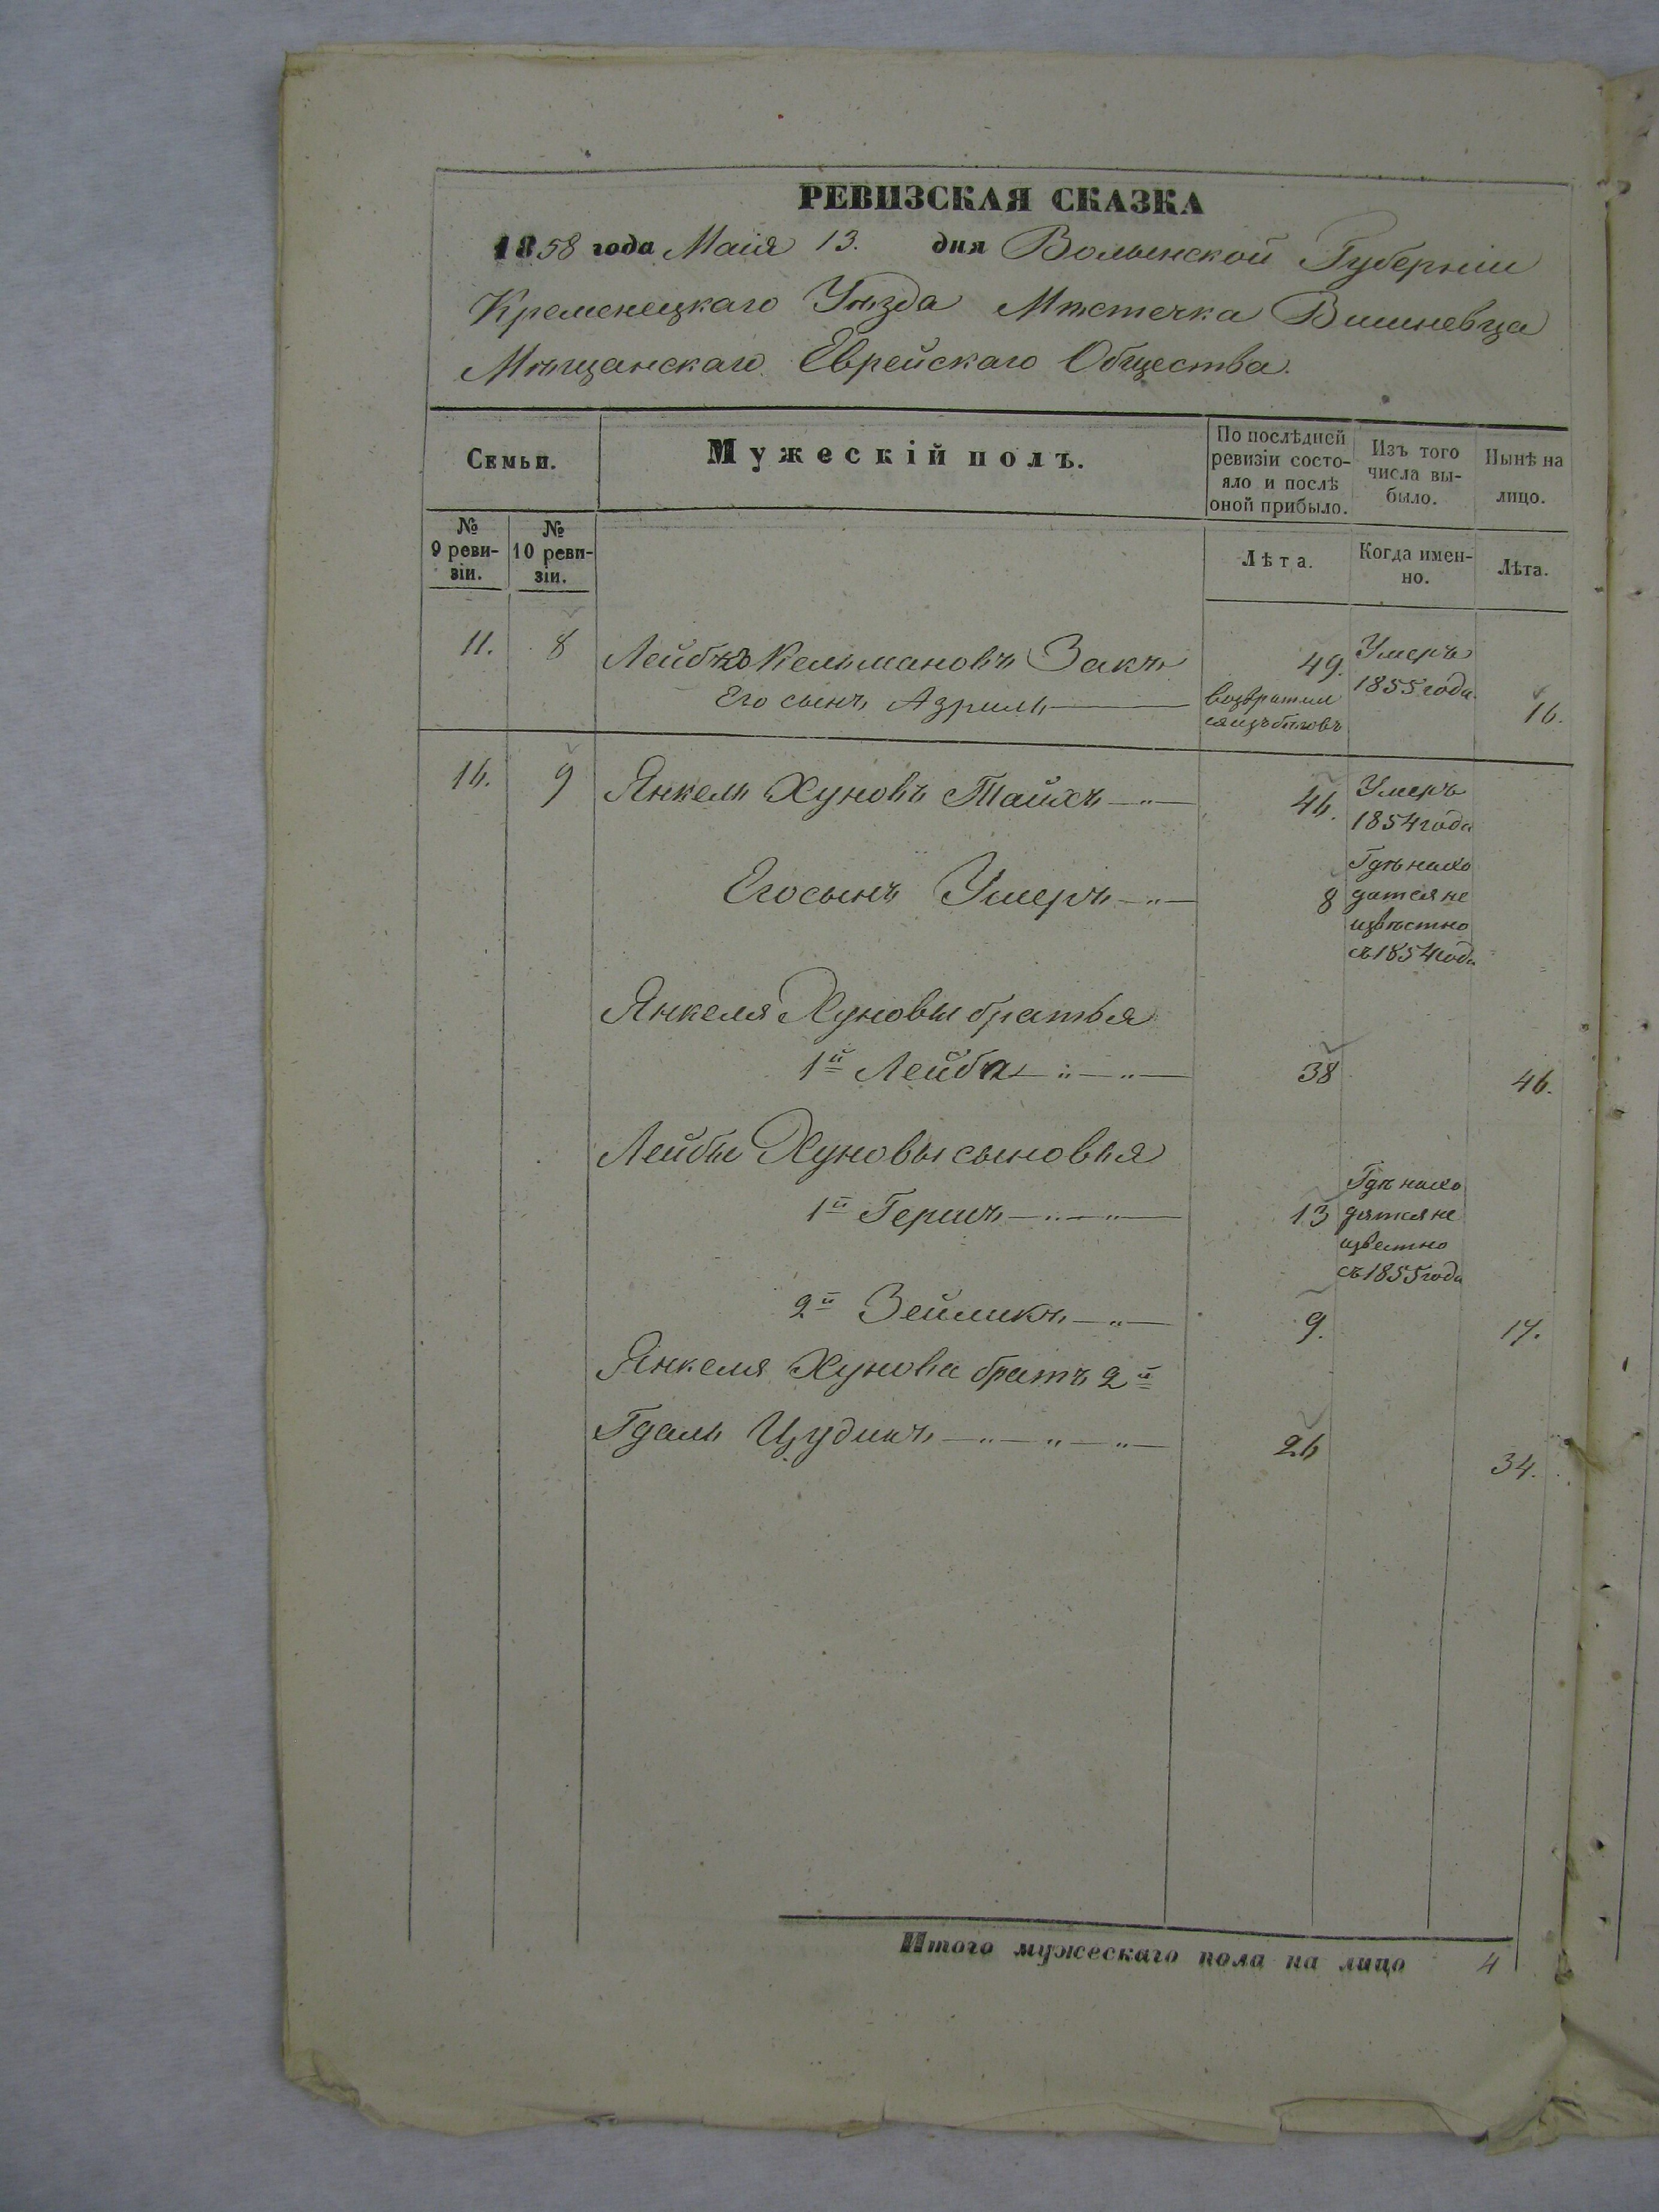 РЕВИЗСКАЯ СКАЗКА
1858 года Маія 13. дня Волынской Губерніи
Кременецкаго Уѣзда Мѣстечка Вишневца
Мѣщанскаго Еврейскаго Общества.
Семьи.
Мужескій полъ.
По послѣдней
ревизіи состо-
яло и послѣ
оной прибыло.
Изъ того
числа вы-
было.
Нынѣ на
лицо.
№
9 реви-
зіи.
№
10 реви-
зіи.
Лѣта.
Когда имен-
но.
Лѣта.
11. 8 Лейбко Кельмановъ Закъ 49. Умеръ
1855 года.
Его сынъ Азриль возвратил
ся изъ бѣговъ 16.
16. 9 Янкель Хуновъ Тайхъ 46. Умеръ
1854 года
Его сынъ Умеръ 8 Гдѣ нахо
дится не
извѣстно
съ 1854 года
Янкеля Хуновы братья
1й Лейба 38 46.
Лейбы Хуновы сыновья
1й Гершъ 13 Гдѣ нахо
дятся не
известно
съ 1855 года
2й Зейликъ 9. 17.
Янкеля Хунова братъ 2й
Гдаль Цудикъ 26 34.
Итого мужескаго пола на лицо 4